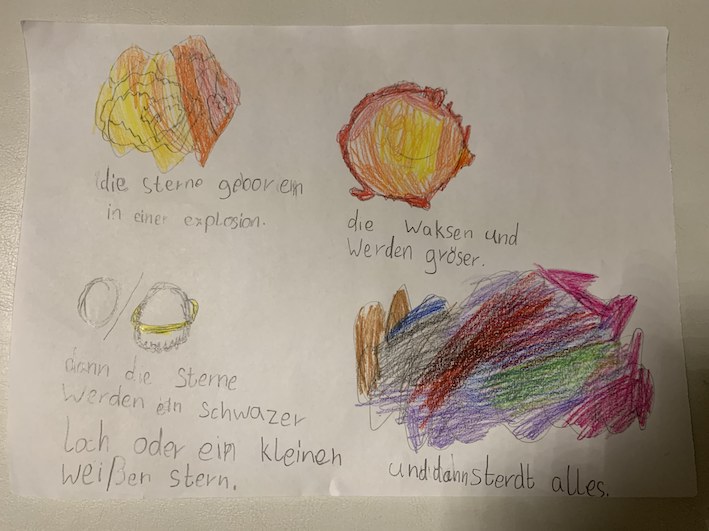 die sterne geboriein
in einer explosion.
die Waksen und
Werden gröser.
dann die Sterne
Werden ein schwazer
Loch oder ein kleinen
weißen stern.
und dahn sterdt alles.